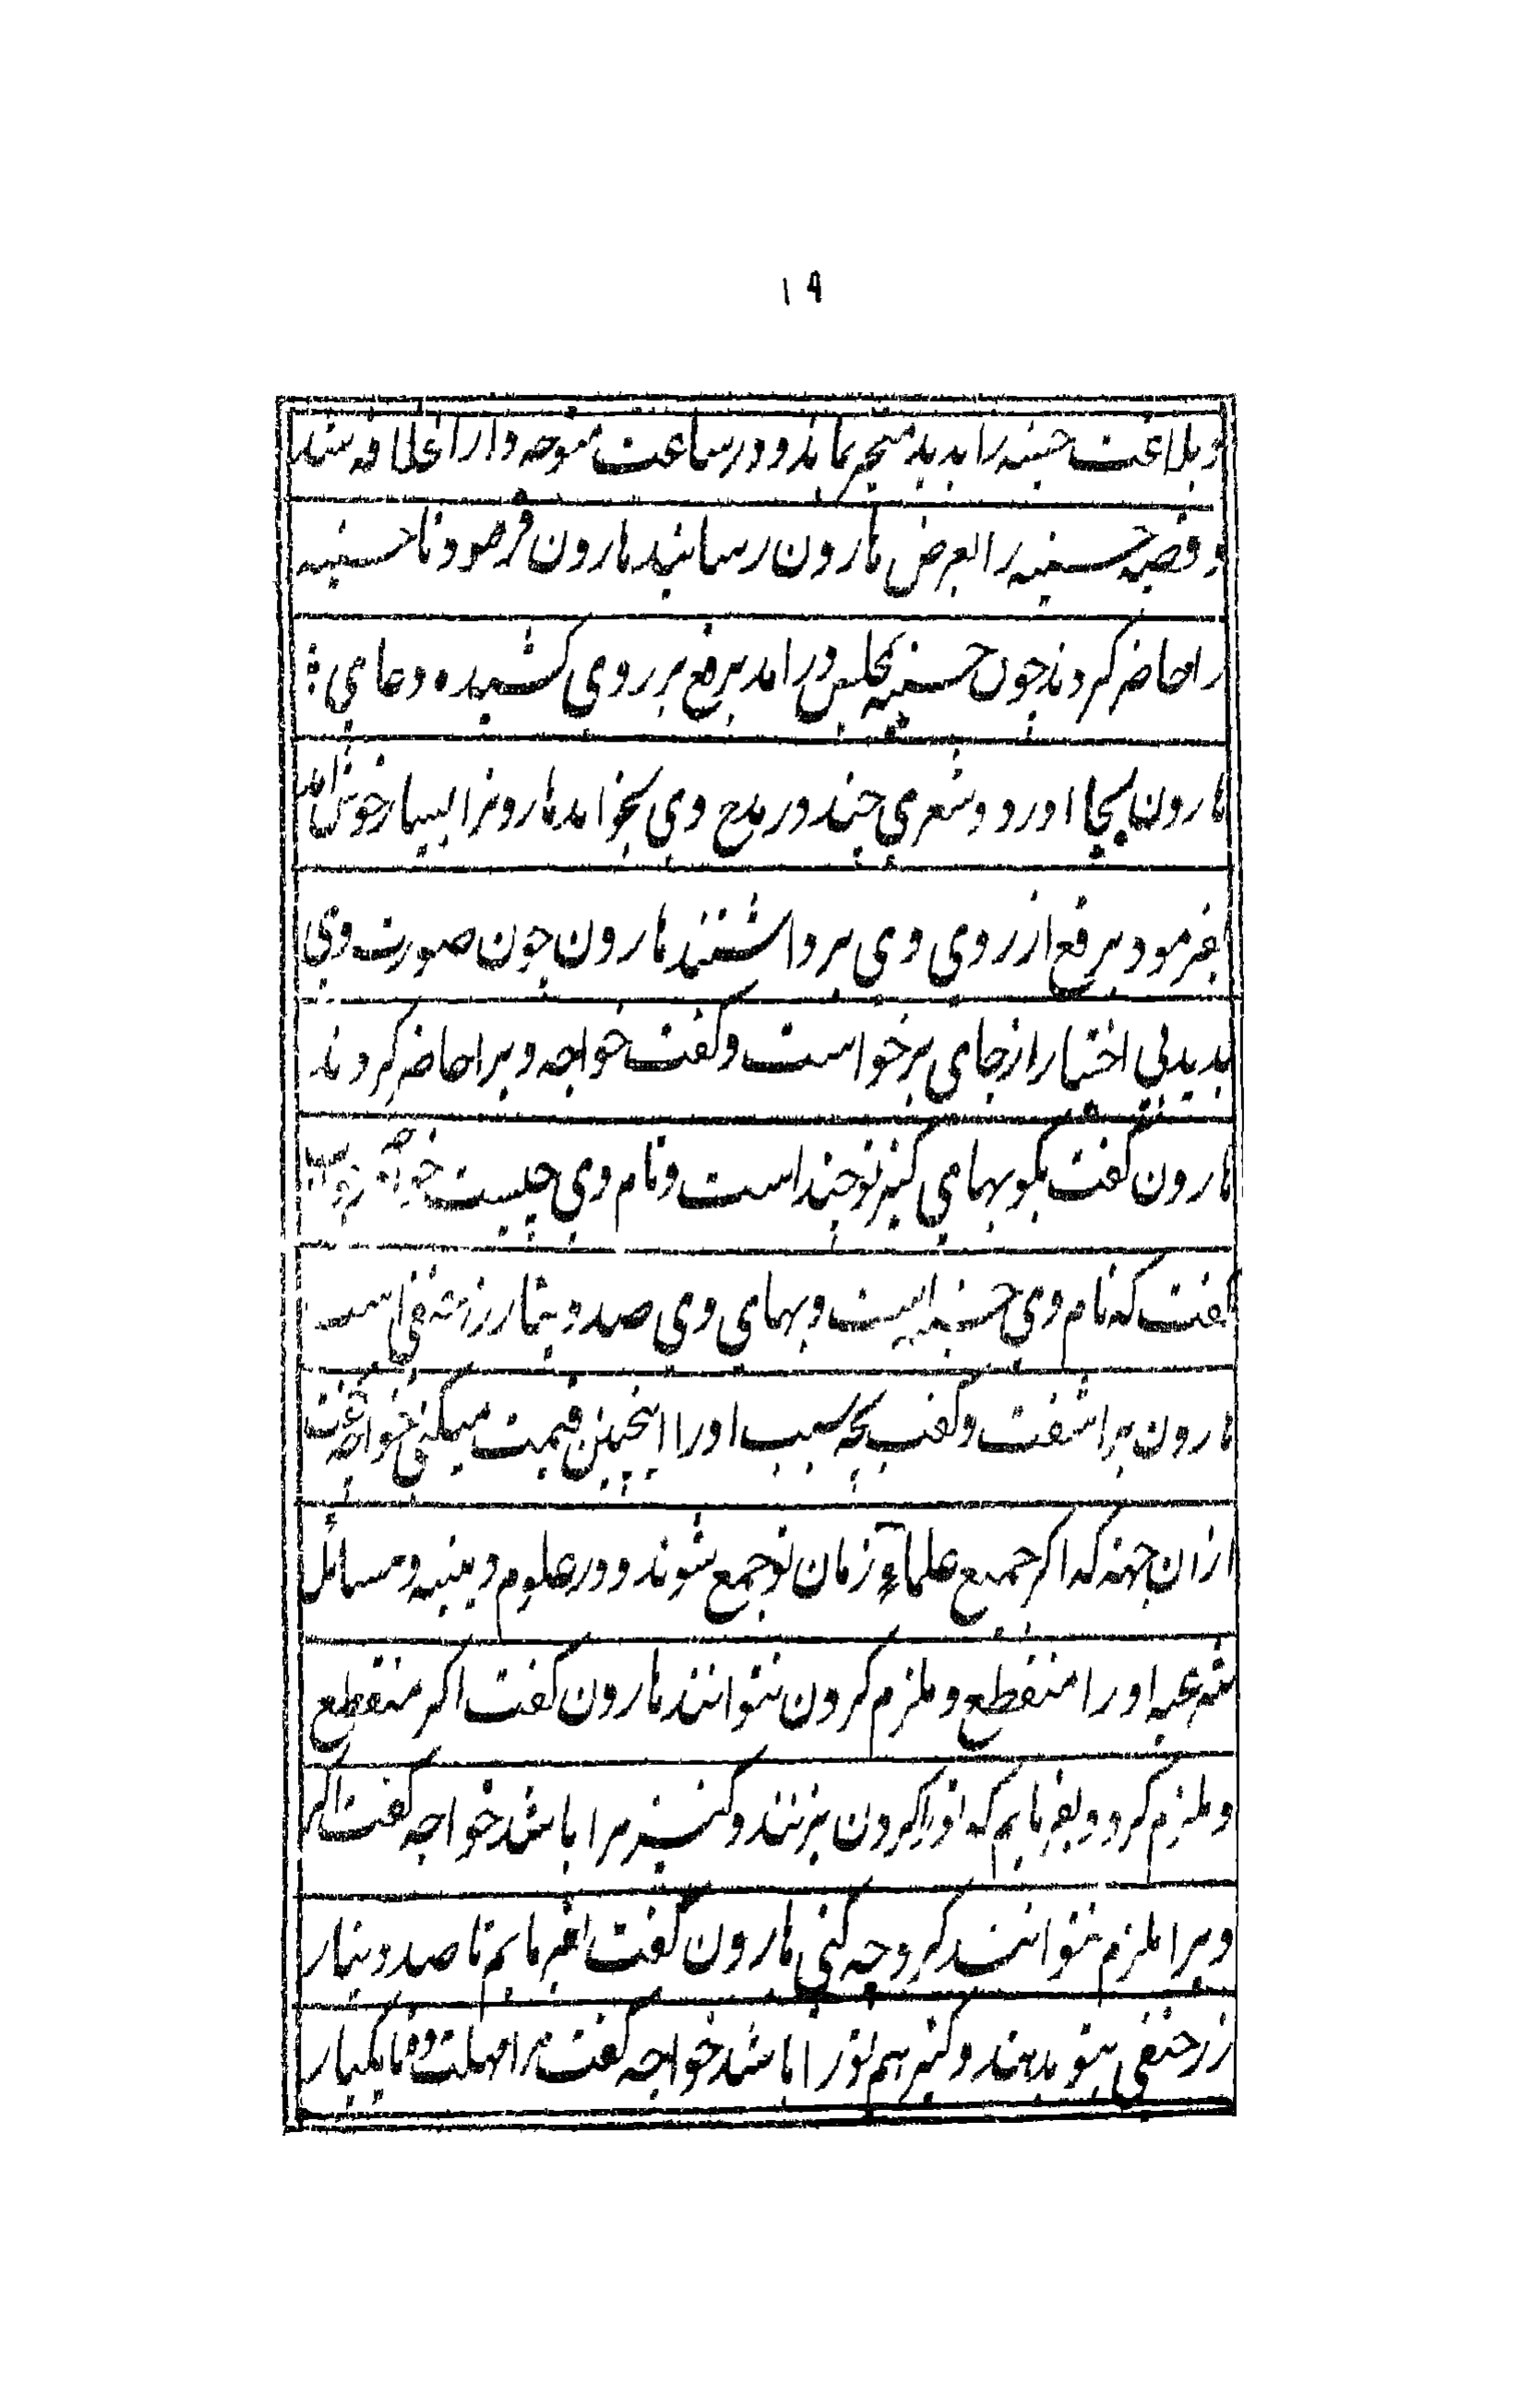 ۱۹
و بلاغت حسنیه را بدید متحیر بماند و در ساعت متوجه دار الخلافه شد
و قصه حسنیه را بعرض هارون رسانید هارون فرمود تا حسنیه
را حاضر کردند چون حسنیه بمجلس در امد برقع بر روی کشیده دعای
هارون بجا اورد و شعری چند در مدح وی بخواند هارونرا بسیار خوش امد
بفرمود برقع از روی وی برداشتند هارون چون صورت وی
بدید بی اختیار از جای برخواست و کفت خواجه ویرا حاضر کردند
هارون کفت بکو بهای کنیز تو چند است و نام وی چیست خواجه
کفت که نام وی حسنیه است و بهای وی صد دینار زر است
هارون براشفت و کفت بچه سبب اورا اینچنین قیمت میکنی خواجه کفت
ازان جهته که اکر جمیع علماء زمان تو جمع شوند و در علوم دینیه و مسائل
شرعیه اورا منقطع و ملزم کردن نتوانند هارون کفت اکر منقطع
و ملزم کردد بفرمایم که تورا کردن بزنند و کنیز مرا باشد خواجه کفت اکر
ویرا ملزم نتوانند کرد چه کنی هارون کفت بفرمایم تا صد دینار
زر خنفی بتو بدهند و کنیز هم تورا باشد خواجه کفت مرا مهلت ده تا یکبار